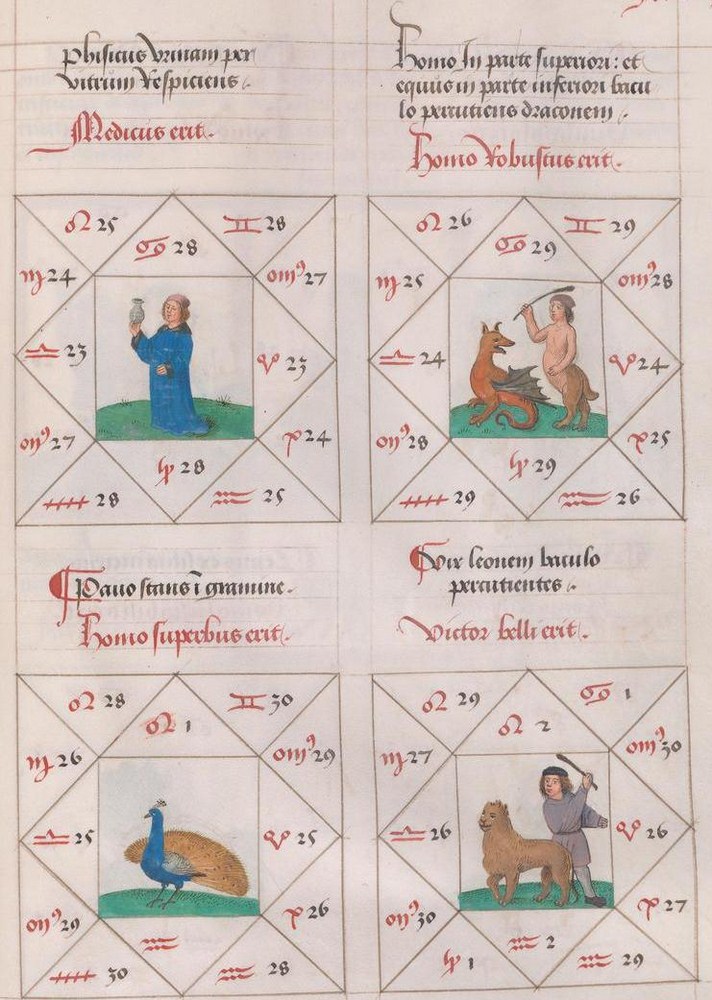 phisicus vrinam per
vitrum respiciens
Medicus erit
♌ 25
♊ 28
♋ 28
♍ 24
27
♎ 23
♈ 23
27
24
28
28
♒ 25
Homo In parte superiori: et
equus in parte inferiori bacu
lo percutiens draconem
Homo Robustus erit
♌ 26
♊ 29
♋ 29
♍ 25
28
♎ 24
♈ 24
28
25
29
29
♒ 26
Pauo stans ī gramine
Homo superbus erit
♌ 28
♊ 30
♌ 1
♍ 26
29
♎ 25
♈ 25
29
26
♒
30
♒ 28
leonem baculo
percutientes
Victor belli erit
♌ 29
♋ 1
♌ 2
♍ 27
30
♎ 26
♈ 26
30
27
♒ 2
1
♒ 29